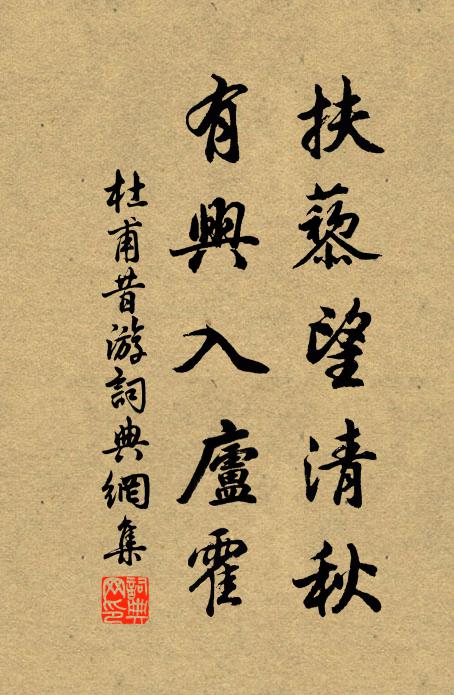 扶藜望清秋
有興入廬霍
杜甫昔游詞典網集
詞典網印